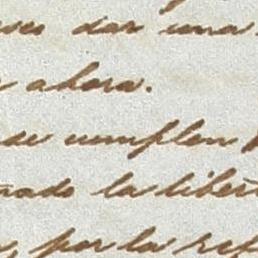 dar una
ahora.
de cumplen
la libert
, por la ref